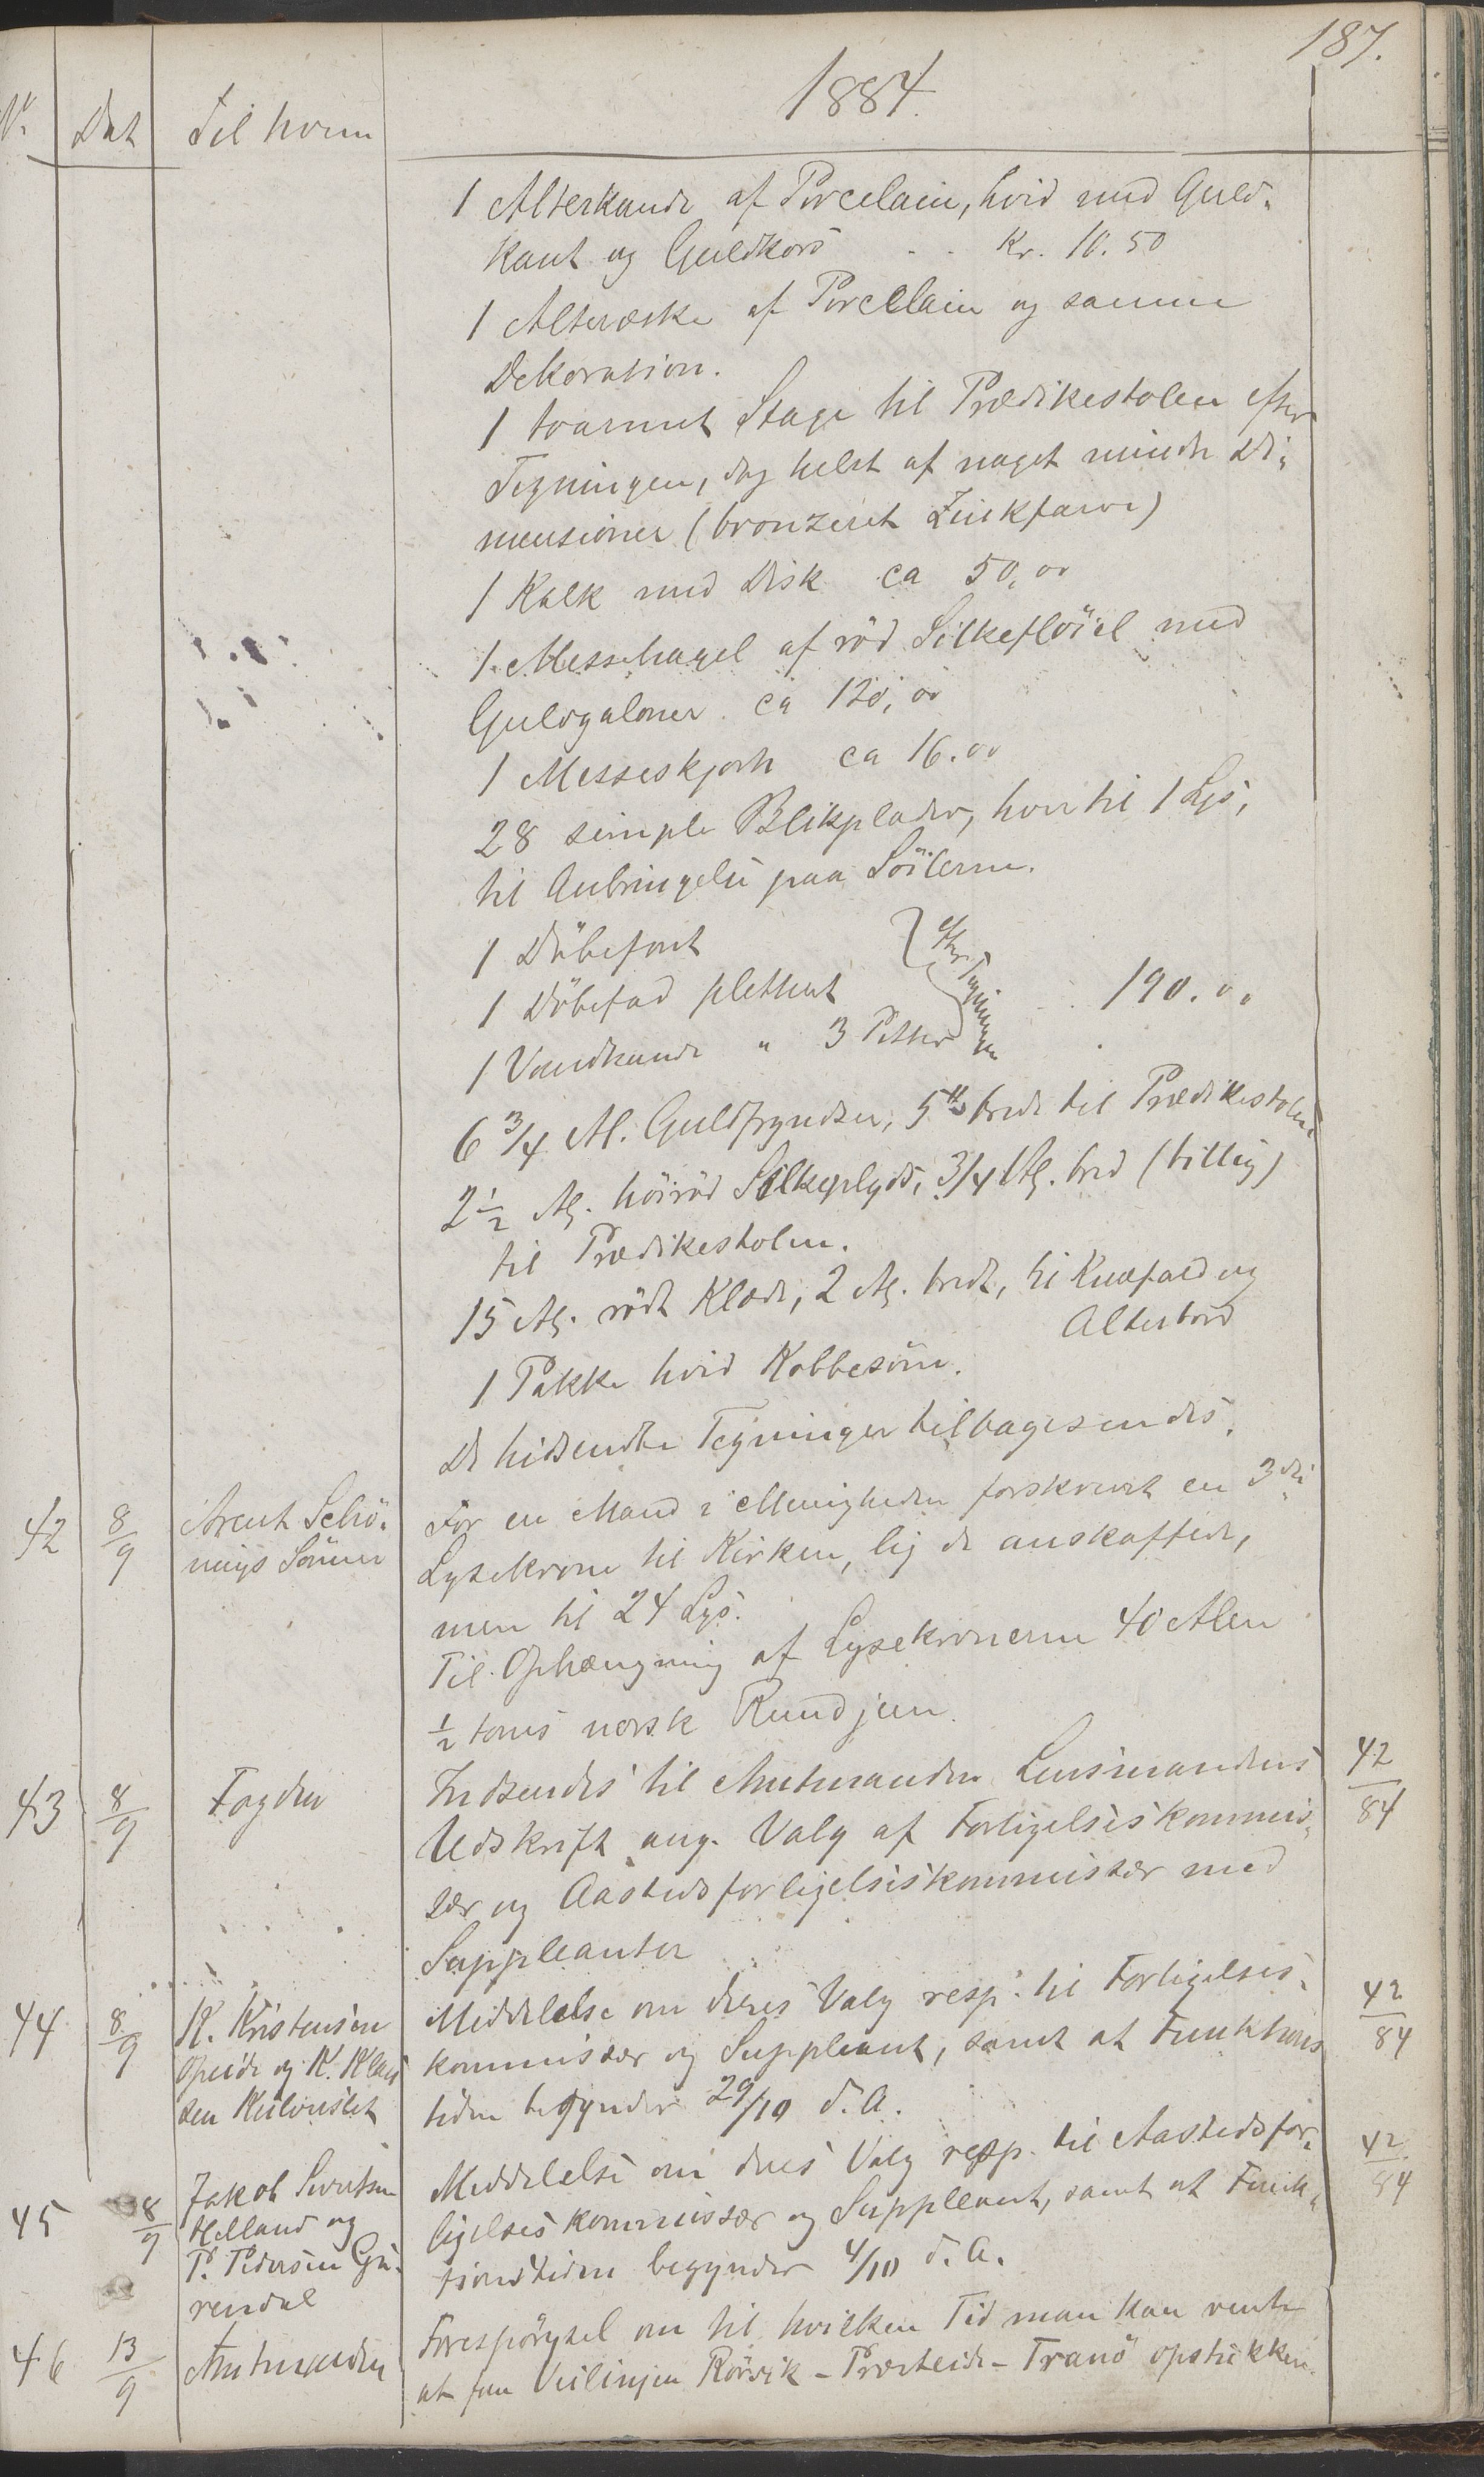 187.
1884.
Nr. Dat Til hvem
1 Alterkande af Porcelain, hvid med Guld-
kant og Guldkors . . Kr. 10.50
1 Alteræske af Porcelain og samme
Dekoration.
1 toarmet Stage til Prædikestolen efter
Tegningen, dog helst af noget mindre Di-
mensioner (bronzeret Zinkfarve)
1 Kalk med Disk ca 50,00
1 Messehagel af rød Silkefløiel med
Guldgaloner ca 120,00
1 Messeskjorte ca 16.00
28 simple Blikplader, hver til 1 Lys,
til Anbringelse paa Søilerne.
1 Døbefont
1 Døbefad pletteret
1 Vandkande " 3 Potter
efter Tegningen
190.00
6 3/4 Al. Guldfryndser, 5" brede til Prædikestolen
2 1/2 Al. høirød Silkeplyds, 3/4 Al. bred (billig)
til Prædikestolen.
15 Al. rødt Klæde, 2 Al. bredt, til Knæfald og
Alterbord
1 Pakke hvid Kobbesøm.
De hidsendte Tegninger tilbagesendes.
42 8/9 Arent Schø-
nings Sønner
For en Mand i Menigheden forskrevet en 3die
Lysekrone til Kirken, lig de anskaffede,
men til 24 Lys.
Til Ophængning af Lysekronerne 40 Alen
1/2 toms norsk Rundjern.
43 8/9 Fogden
Indsendes til Amtmanden Lensmandens 42/84
Udskrift ang. Valg af Forligelseskommis-
sær og Aastedsforligelseskommissær med
Suppleanter
44 8/9 K. Kristensen
Opeide og K. Klau
sen
Meddelelse om deres Valg resp. til Forligelses- 42/84
kommissær og Suppleant, samt at Funktions
tiden begynder 29/10 d. A.
45 8/9 Jakob Sivertsen
Helland og
P. Pedersen
rendal
Meddelelse om deres Valg resp. til Aastedsfor- 42/84
ligelseskommissær og Suppleant, samt at Funk-
tionstiden begynder 4/10 d. A.
46 13/9 Amtmanden
Forespørgsel om til hvilken Tid man kan vente
at faa Veilinjen Rørvik - Presteide - Tranø opstukken.